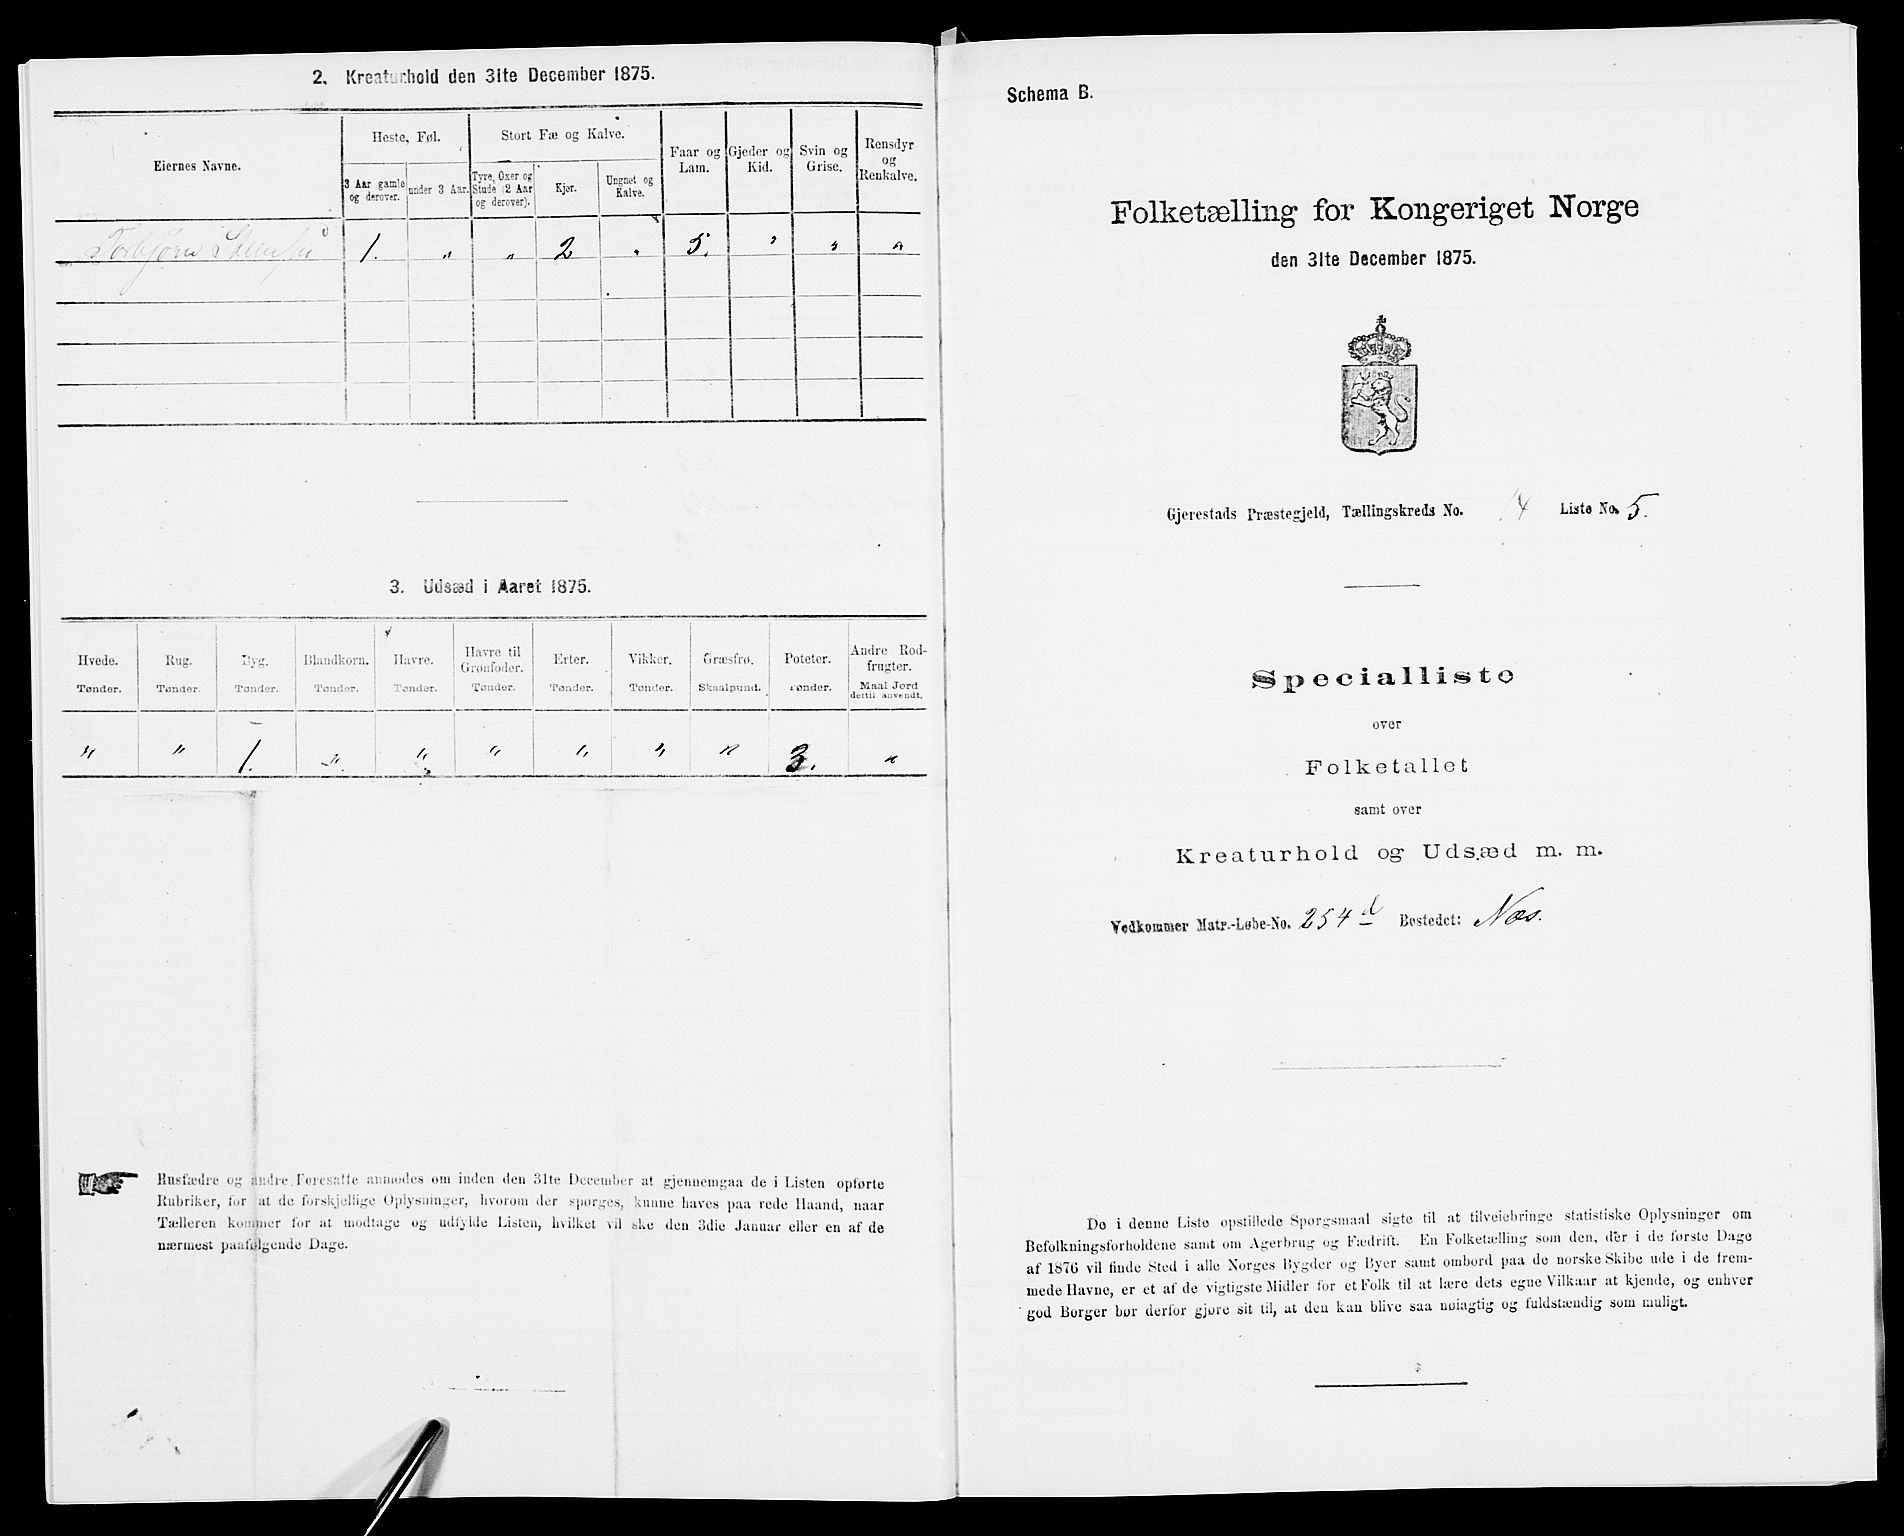 2. Kreaturhold den 31te December 1875.
Eiernes Navne.
Heste, Føl.
Stort Fæ og Kalve.
Faar og Lam.
Gjeder og Kid.
Svin og Grise.
Rensdyr og Renkalve.
3 Aar gamle og derover.
under 3 Aar.
Tyre, Oxer og Stude (2 Aar og derover).
Kjør.
Ungnet og Kalve.
Torbjørn 1. " " 2 " 5. " " "
3. Udsæd i Aaret 1875.
Hvede. Rug. Byg. Blandkorn. Havre. Havre til Grønfoder. Erter. Vikker. Græsfrø. Poteter. Andre Rodfrugter.
Tønder. Tønder. Tønder. Tønder. Tønder. Tønder. Tønder. Tønder. Skaalpund. Tønder. Maal Jord dertil anvendt.
" " 1. " " " " " " 3. "
Husfædre og andre Foresatte anmodes om inden den 31te December at gjennemgaa de i Listen opførte
Rubriker, for at de forskjellige Oplysninger, hvorom der spørges, kunne haves paa rede Haand, naar
Tælleren kommer for at modtage og udfylde Listen, hvilket vil ske den 3die Januar eller en af de
nærmest paafølgende Dage.
Schema B.
Folketælling for Kongeriget Norge
den 31te December 1875.
Gjerestads Præstegjeld, Tællingskreds No. 14 Liste No. 5.
Specialliste
over
Folketallet
samt over
Kreaturhold og Udsæd m. m.
Vedkommer Matr.-Løbe-No. 254 d Bostedet: Næs.
De i denne Liste opstillede Spørgsmaal sigte til at tilveiebringe statistiske Oplysninger om
Befolkningsforholdene samt om Agerbrug og Fædrift. En Folketælling som den, der i de første Dage
af 1876 vil finde Sted i alle Norges Bygder og Byer samt ombord paa de norske Skibe ude i de frem-
mede Havne, er et af de vigtigste Midler for et Folk til at lære dets egne Vilkaar at kjende, og enhver
god Borger bør derfor gjøre sit til, at den kan blive saa nøiagtig og fuldstændig som muligt.